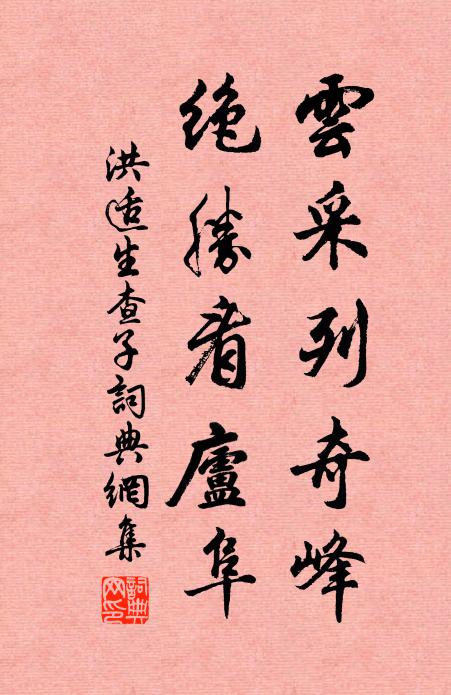 雲采列奇峰
絶勝看廬阜
洪适生查子詞典網集
詞典網印